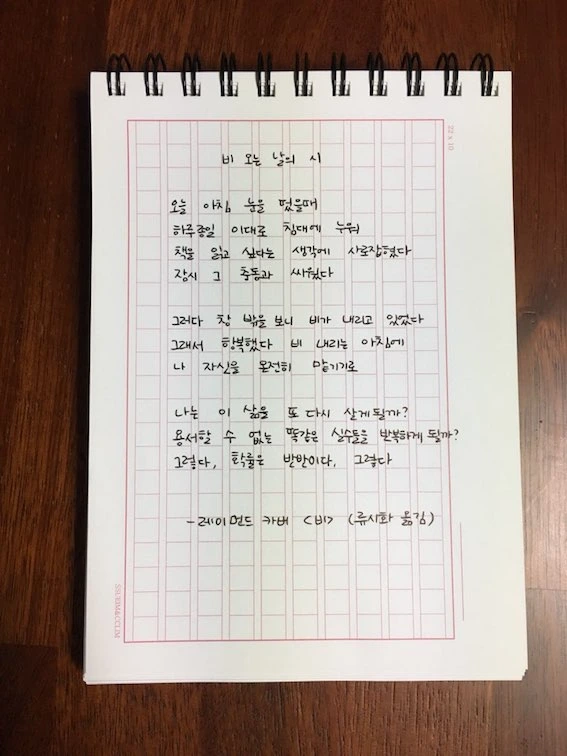 22 x 10
비 오는 날의 시
오늘 아침 눈을 떴을때
하루종일 이대로 침대에 누워
책을 읽고 싶다는 생각에 사로잡혔다
잠시 그 충동과 싸웠다
그러다 창 밖을 보니 비가 내리고 있었다
그래서 항복했다 비 내리는 아침에
나 자신을 온전히 맡기기로
나는 이 삶을 또 다시 살게될까?
용서할 수 없는 똑같은 실수들을 반복하게 될까?
그렇다, 확률은 반반이다, 그렇다
- 레이먼드 카버 <비> (류시화 옮김)